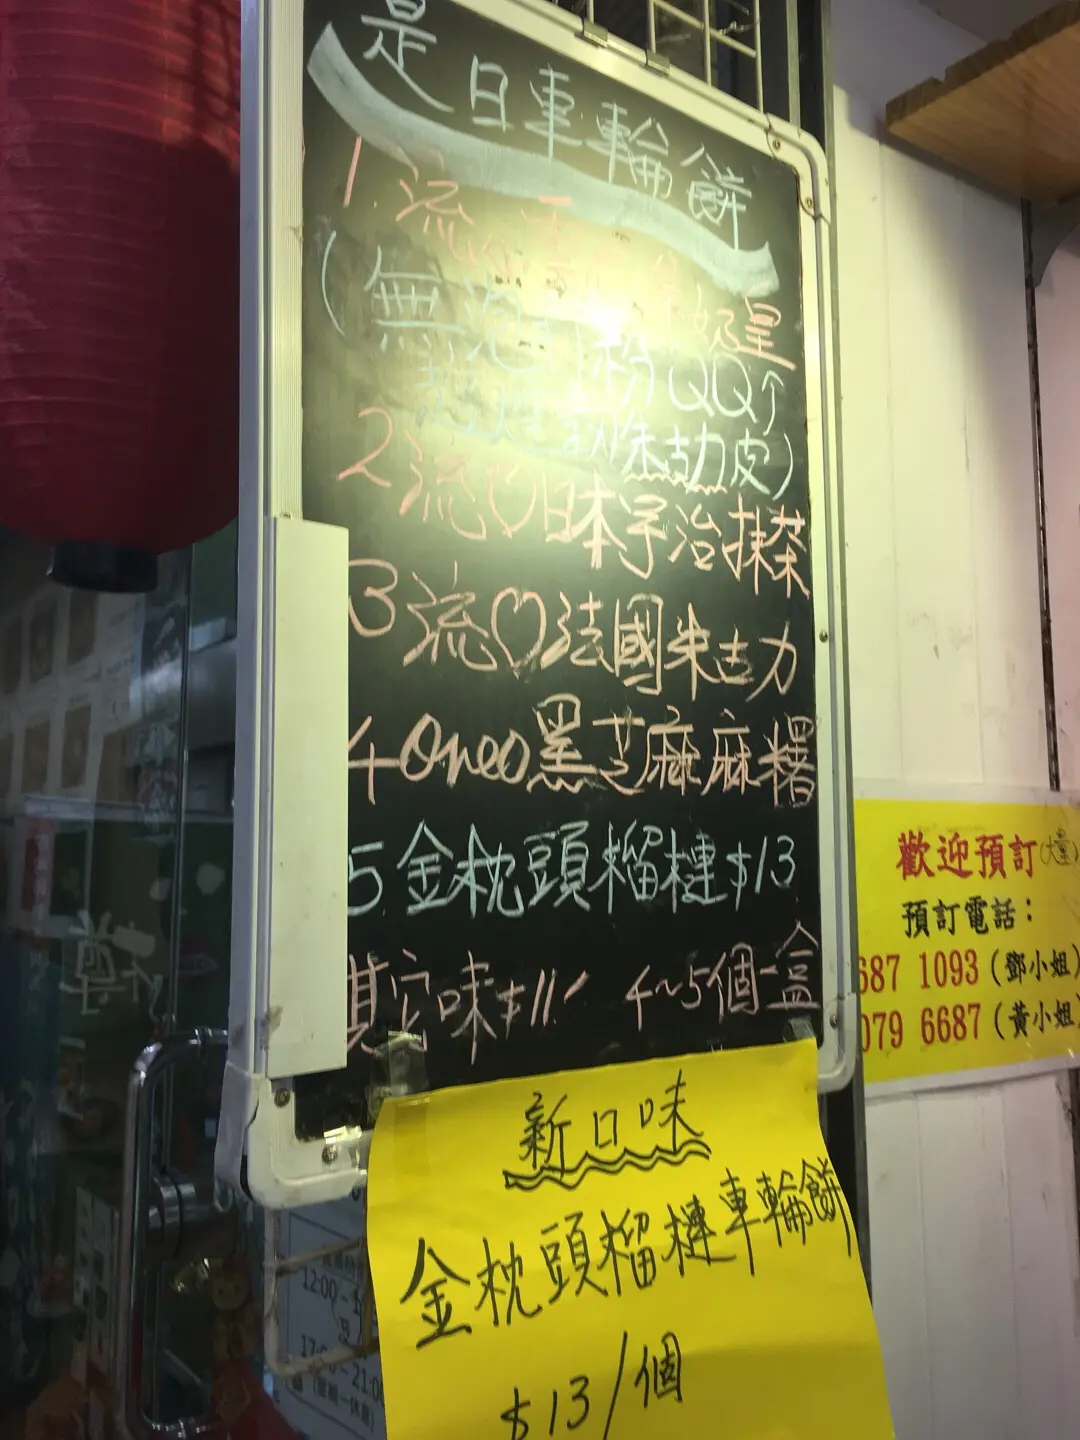 是日車輪餅
1 流心 奶皇
(無泡打粉QQ↑
朱古力皮)
2 流♡日本宇治抹茶
3 流♡法國朱古力
4 Oreo黑芝麻麻糬
5 金枕頭榴槤 $13
其它味 $11 4~5個一盒
新口味
金枕頭榴槤車輪餅
$13/個
歡迎預訂(大量)
預訂電話:
687 1093 (鄧小姐)
079 6687 (黃小姐)
12:00 -
17: - 21:00
(星期一休息)